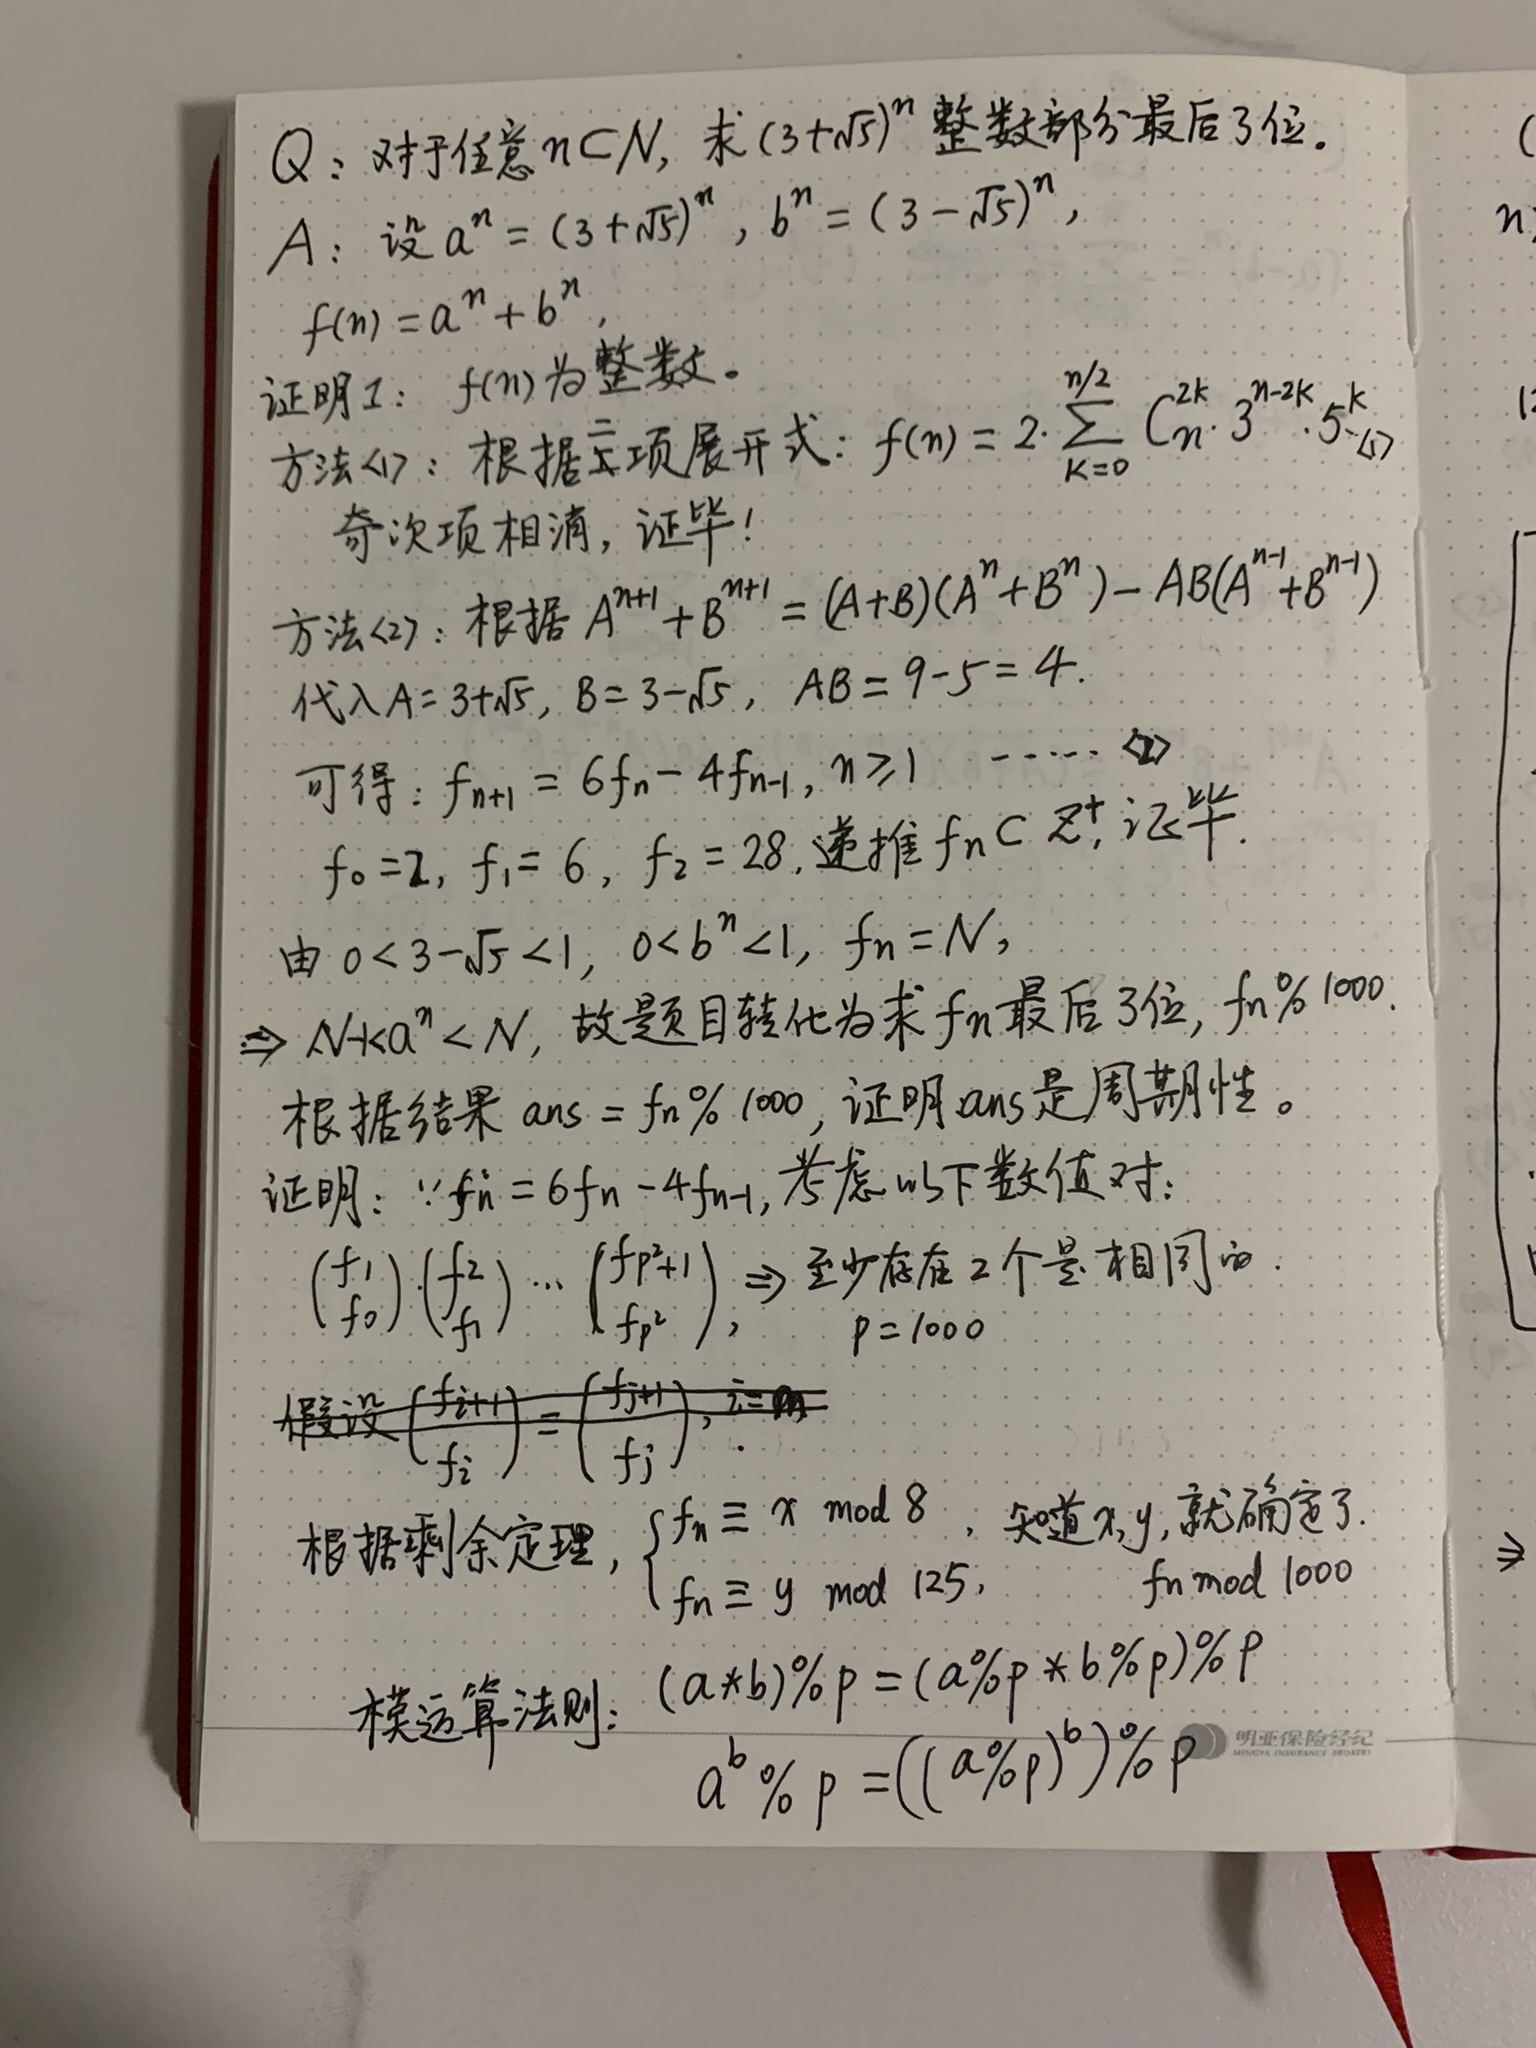 Q：对于任意n⊂N，求(3+√5)^n 整数部分最后3位。
A：设a^n=(3+√5)^n，b^n=(3-√5)^n，
f(n)=a^n+b^n，
证明1：f(n)为整数。
方法<1>：根据二项展开式：f(n)=2·∑_{k=0}^{n/2} C_n^{2k}·3^{n-2k}·5^k …<1>
奇次项相消，证毕！
方法<2>：根据A^{n+1}+B^{n+1}=(A+B)(A^n+B^n)-AB(A^{n-1}+B^{n-1})
代入A=3+√5，B=3-√5，AB=9-5=4.
可得：f_{n+1}=6f_n-4f_{n-1}，n≥1 ……<2>
f_0=2，f_1=6，f_2=28，递推f_n⊂Z^+，证毕.
由0<3-√5<1，0<b^n<1，f_n=N，
⇒ N-1<a^n<N，故题目转化为求f_n最后3位，f_n%1000.
根据结果ans=f_n%1000，证明ans是周期性。
证明：∵f_n=6f_n-4f_{n-1}，考虑以下数值对：
(f_1 f_0)·(f_2 f_1)…(f_{p²+1} f_{p²})，⇒至少存在2个是相同的.
p=1000
假设(f_{i+1} f_i)=(f_{j+1} f_j)，i=
根据剩余定理，{f_n≡x mod 8，知道x,y,就确定了.
f_n≡y mod 125， f_n mod 1000
模运算法则：(a*b)%p=(a%p*b%p)%p
a^b%p=((a%p)^b)%p
明亚保险经纪
MINGYA INSURANCE BROKERS